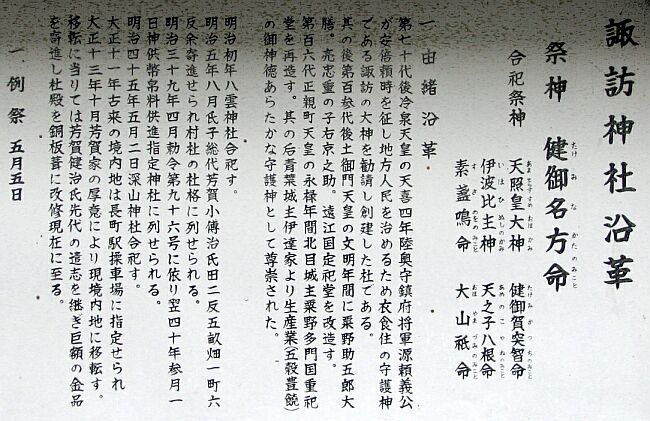 諏訪神社沿革
祭神　健御名方命
たけみなかたのみこと
合祀祭神
天照皇大神　健御賀突智命
あまてらすすめおほかみ　たけみかづちのみこと
伊波比主神　天之子八根命
いはひぬしのかみ　あめのこやねのみこと
素盞鳴命　大山祇命
すさのをのみこと　おほやまづみのみこと
一　由緒沿革
第七十代後冷泉天皇の天喜四年陸奥守鎮府将軍源頼義公
が安倍頼時を征し地方人民を治めるため衣食住の守護神
である諏訪の大神を勧請し創建した社である。
其の後第百参代後土御門天皇の文明年間に粟野助五郎大
膳。亮忠重の子右京之助。遠江国定祀堂を改造す。
第百六代正親町天皇の永禄年間北目城主粟野多門国重祀
堂を再造す。其の后青葉城主伊達家より生産業（五穀豊饒）
の御神徳あらたかな守護神として尊崇された。
明治初年八雲神社合祀す。
明治五年八月氏子総代芳賀小傳治氏田二反五畝畑一町六
反余寄進せられ村社の社格に列せられる。
明治三十九年四月勅令第九十六号に依り翌四十年参月一
日神供幣帛料供進指定神社に列せられる。
明治四十五年五月二日深山神社合祀す。
大正十一年古来の境内地は長町駅操車場に指定せられ
大正十三年十月芳賀家の厚意により現境内地に移転す。
移転に当りては芳賀健治氏先代の遺志を継ぎ巨額の金品
を寄進し社殿を銅板葺に改修現在に至る。
一　例祭　五月五日